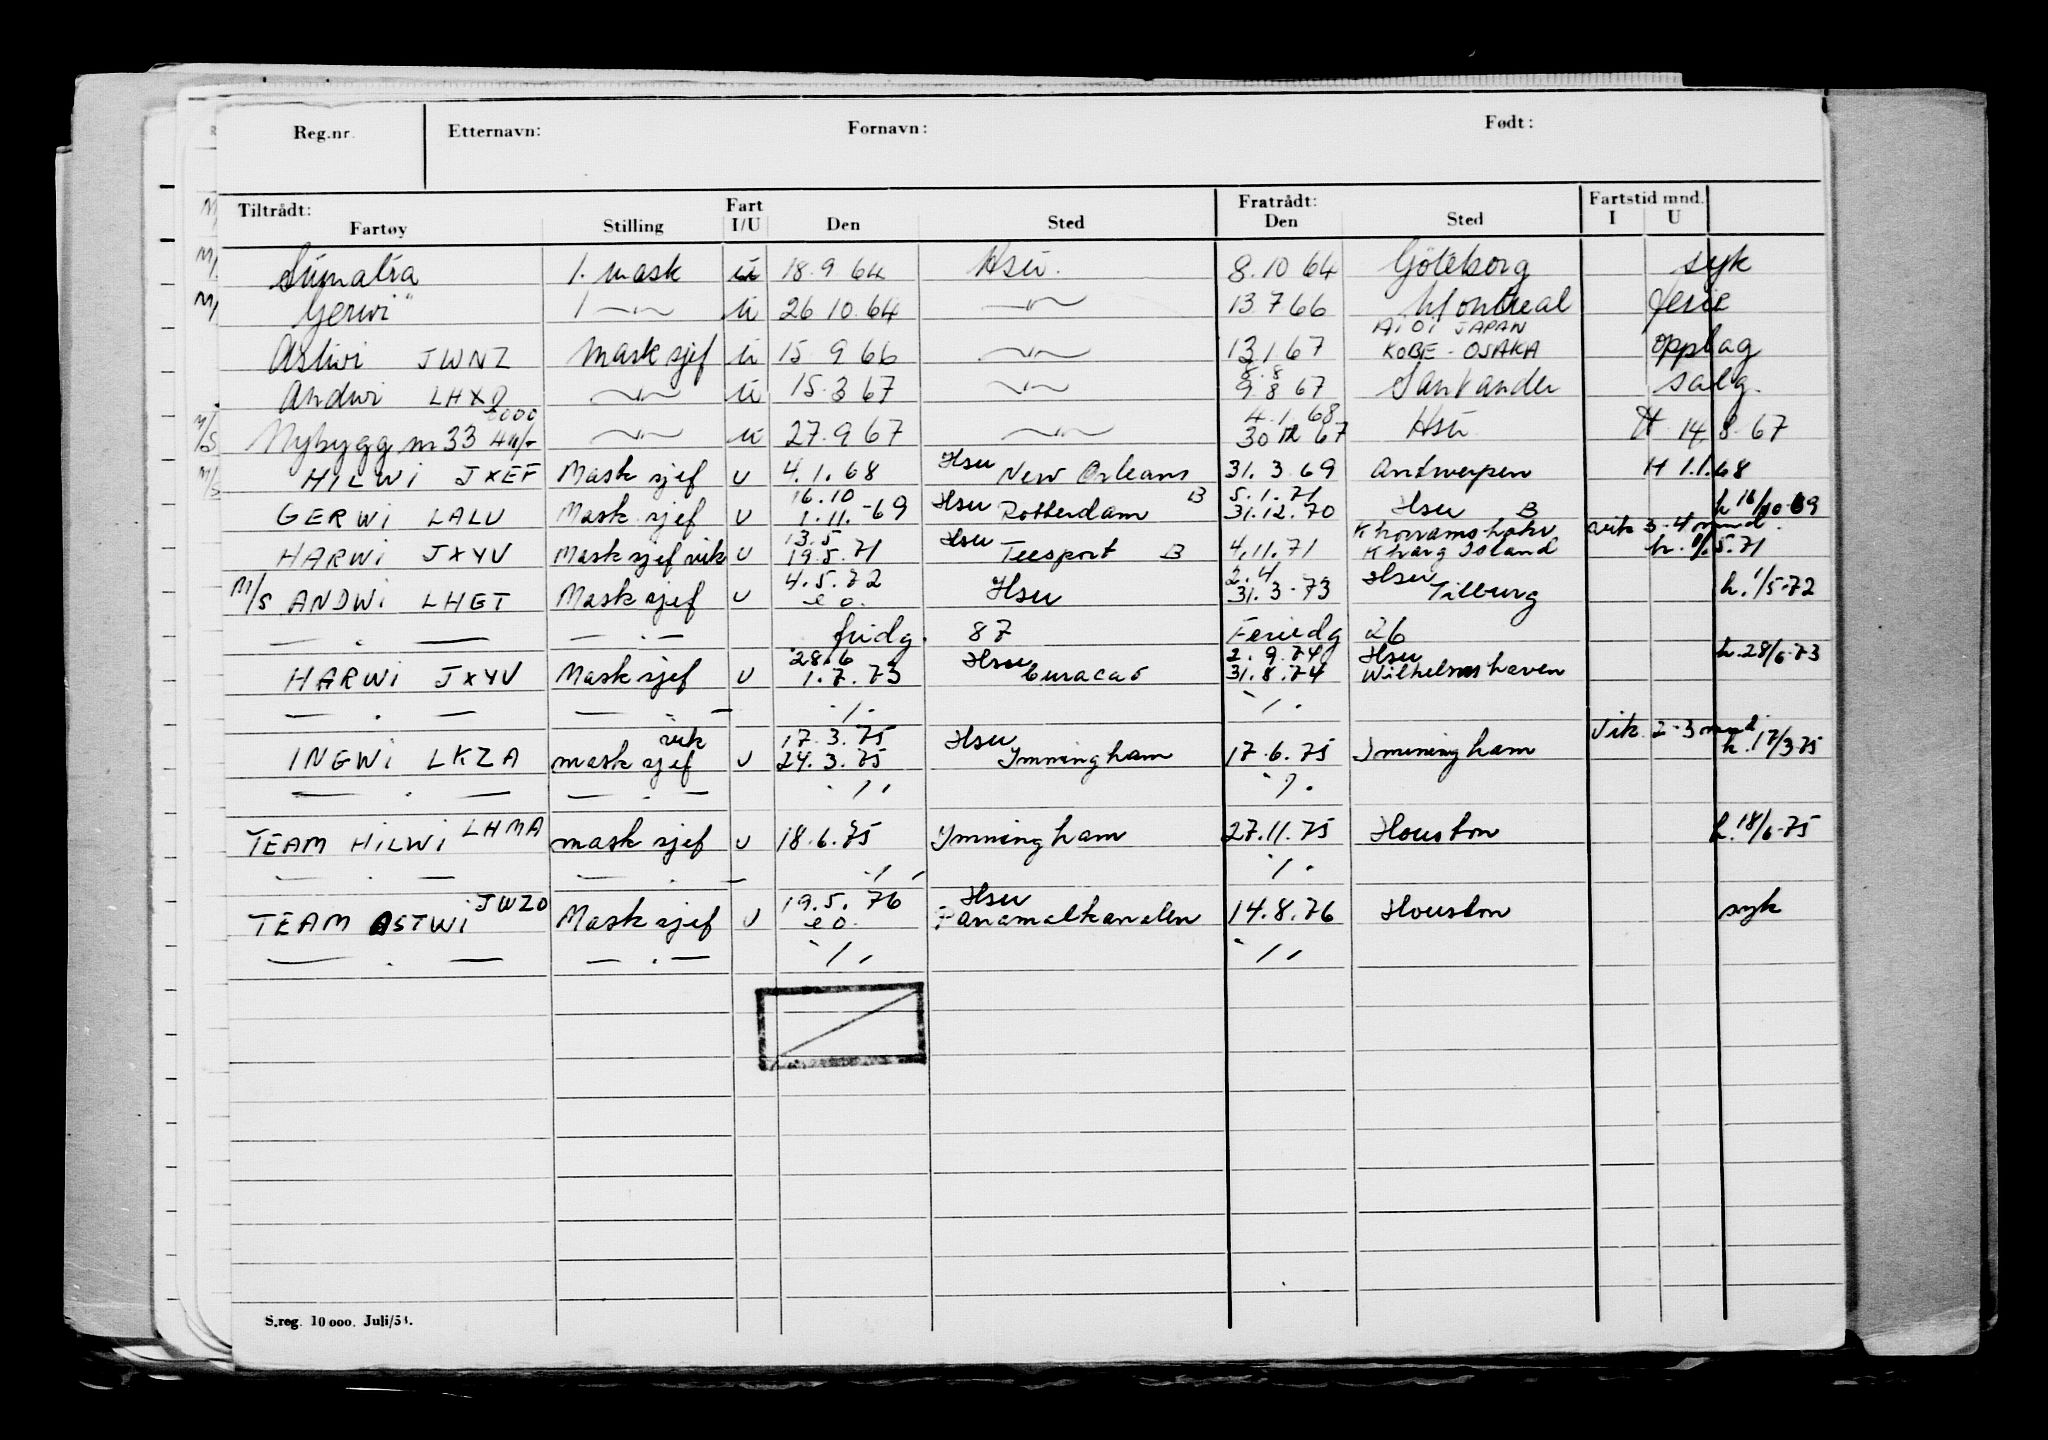 Reg.nr. Etternavn: Fornavn: Født:
Tiltrådt: Fart Fratrådt: Fartstid mnd.
Fartøy Stilling I/U Den Sted Den Sted I U
M/ Sumatra 1. mask u 18.9 64 Hsu. 8.10 64 Göteborg syk
M/ Gerwi" 1 —"— u 26 10.64 —"— 13 7 66 Montreal ferie
AIOI JAPAN
Astwi JWNZ Mask sjef u 15 9 66 —"— 13 1 67 KOBE - OSAKA opplag
8.8
Andwi LHXQ —"— u 15.3 67 —"— 9 8 67 Santander salg.
6000 4.1.68
M/S Nybygg nr 33 —"— u 27.9 67 —"— 30 12 67 Hsu H 14.8.67
M/S HILWI JXEF Mask sjef U 4.1.68 Hsu New Orleans 31.3.69 Antwerpen H 1.1.68
16.10 5.1.71
GERWI LALU Mask sjef U 1.11.-69 Hsu Rotterdam B 31.12.70 Hsu B h 16/10-69
13.5 Khorramshahr vik 3-4 mnd.
HARWI JXYV Mask sjef vik U 19.5.71 Hsu Teesport B 4.11.71 Kharg Island h. 5.71
4.5.72 2.4 Hsu
M/S ANDWI LHGT Mask sjef U e o. Hsu 31.3-73 Tilburg h. 1/5-72
— . — — . — fridg. 87 Feriedg 26
28.6 Hsu 2.9.74 Hsu h. 28/6-73
HARWI JXYV Mask sjef U 1.7.73 Curacao 31.8.74 Wilhelmshaven
— . — — . — ./. ./.
vik 17.3.75 Hsu Vik. 2-3 mnd.
INGWI LKZA mask sjef U 24.3.75 Immingham 17.6.75 Immingham h. 17/3-75
— . — — . — ./. ./.
TEAM HILWI LHMA mask sjef U 18.6.75 Immingham 27.11.75 Houston h. 18/6-75
— . — — . — ./. ./.
JWZO 19.5.76 Hsu
TEAM ASTWI Mask sjef U e o. Panamakanalen 14.8.76 Houston syk
— . — — . — ./. ./.
S.reg. 10 000. Juli/54.